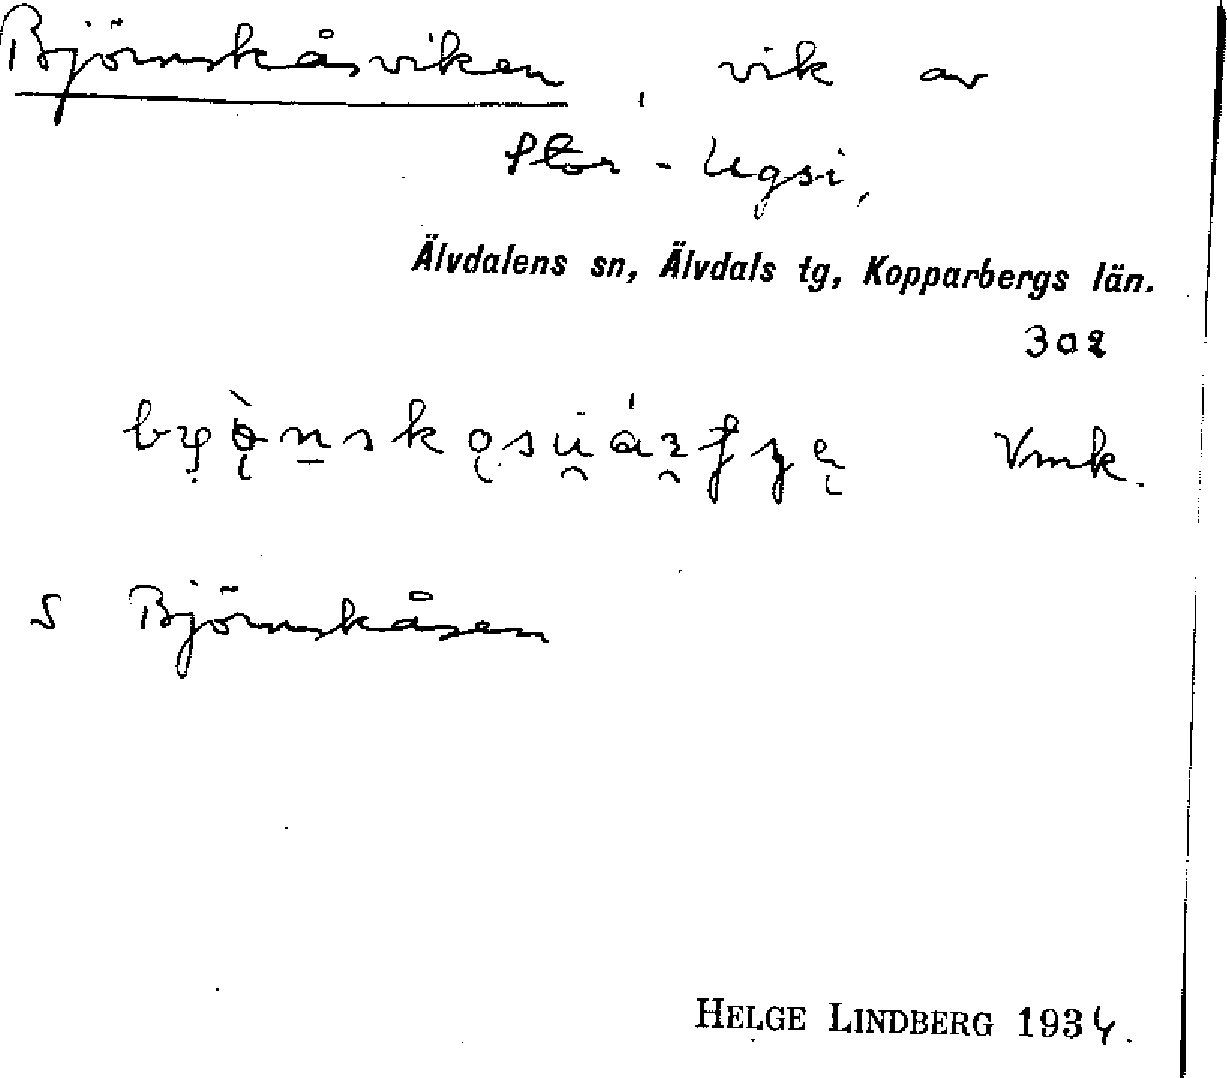 Björnskåsviken, vik av
Stor-Ugsi,
Älvdalens sn, Älvdals tg, Kopparbergs län.
302
Vmk.
S Björnskåsen
HELGE LINDBERG 1934.